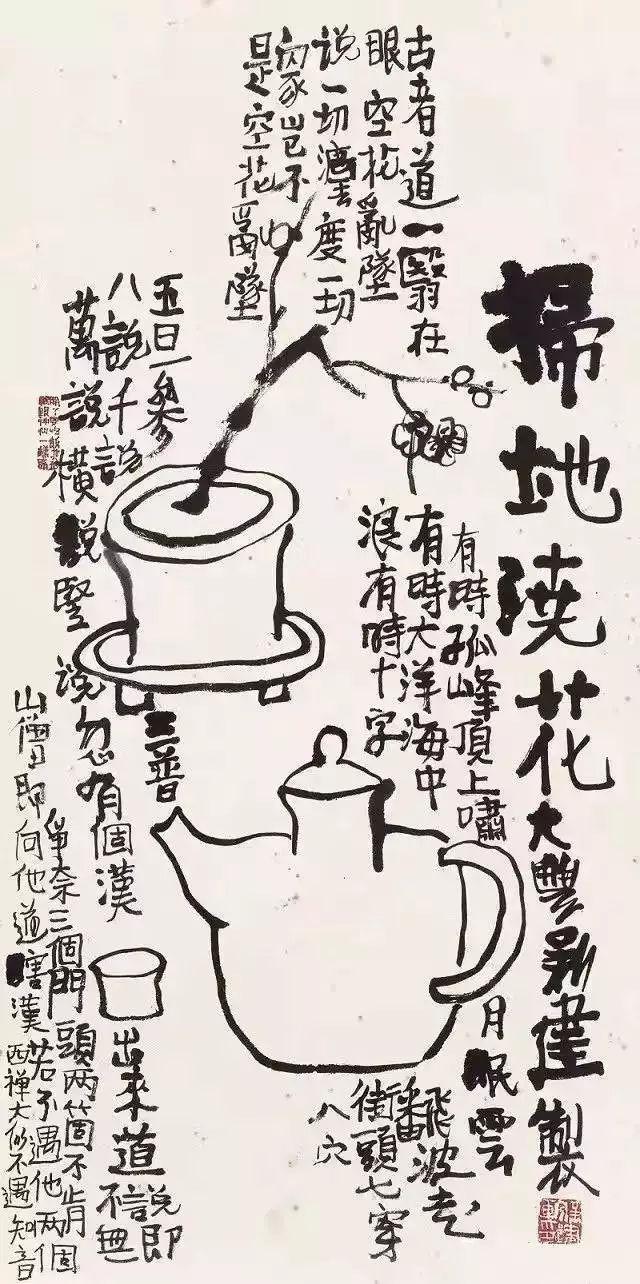 掃地澆花
大豐新建製
古者道一翳在
眼空花亂墜
說一切度一切
衆豈不
是空花亂墜
有時孤峰頂上嘯
月眠雲
有時大洋海中
飜波走
浪有時十字
街頭七穿
八穴
五日一參
三普
八說千說
萬說橫說豎說忽有個漢
出來道
說即
不無
爭奈三個門頭兩箇不肯
山僧即向他道瞎漢若不遇他兩個
西禪大似不遇知音